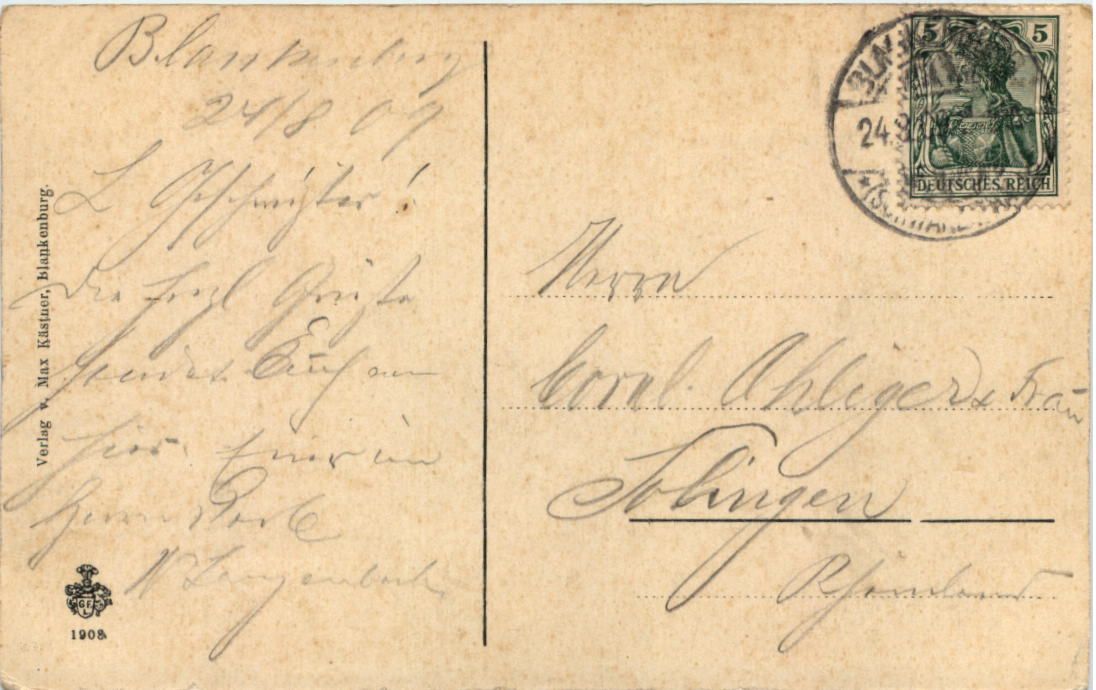 Blankenburg
24/8 09
L Geschwister!
Die Grüße
sendet Euch
hier
W Langenbach
Verlag v. Max Kästner, Blankenburg.
G F L
1908
5 5
DEUTSCHES REICH
BLANK
24.8.09
*(SCHWARZ
Herrn
Cornl. Ohliger & Frau
Solingen
Rheinland